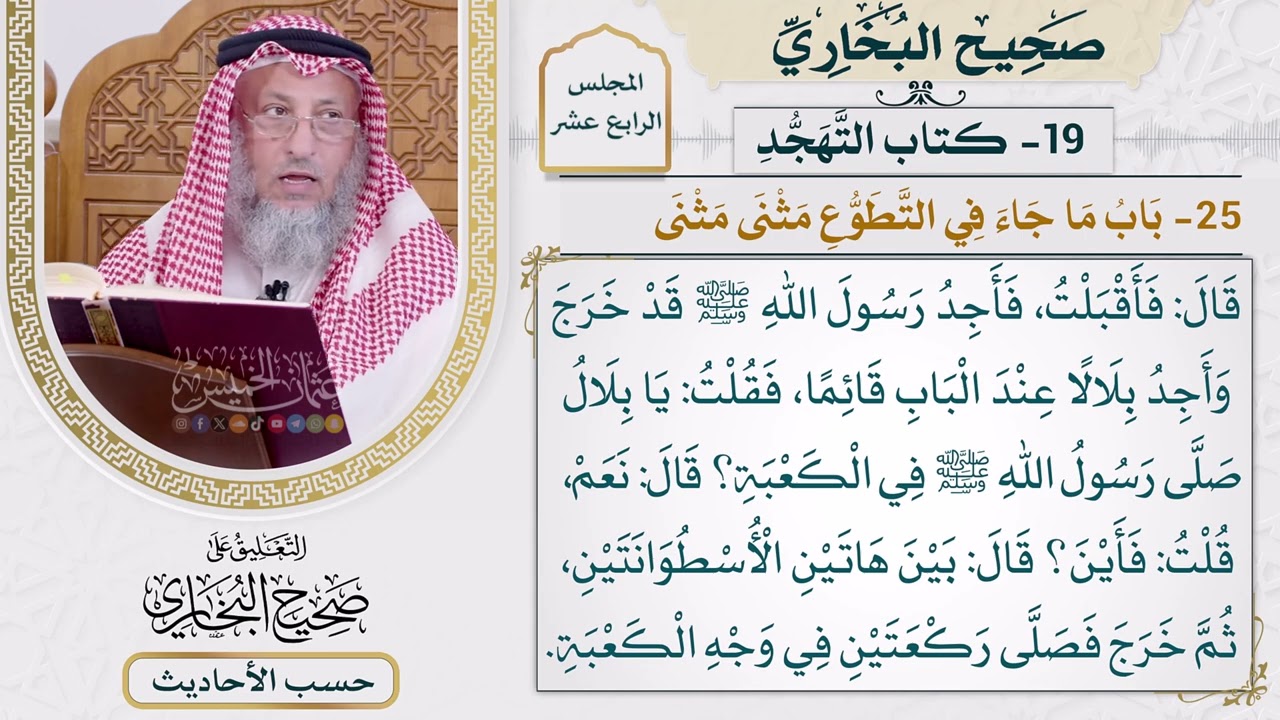 صَحِيح البُخَارِيِّ
المجلس
الرابع عشر
19- كتاب التَّهَجُّدِ
25- بَابُ مَا جَاءَ فِي التَّطَوُّعِ مَثْنَى مَثْنَى
قَالَ: فَأَقْبَلْتُ، فَأَجِدُ رَسُولَ اللهِ ﷺ قَدْ خَرَجَ
وَأَجِدُ بِلَالًا عِنْدَ الْبَابِ قَائِمًا، فَقُلْتُ: يَا بِلَالُ
صَلَّى رَسُولُ اللهِ ﷺ فِي الْكَعْبَةِ؟ قَالَ: نَعَمْ،
قُلْتُ: فَأَيْنَ؟ قَالَ: بَيْنَ هَاتَيْنِ الْأُسْطُوَانَتَيْنِ،
ثُمَّ خَرَجَ فَصَلَّى رَكْعَتَيْنِ فِي وَجْهِ الْكَعْبَةِ.
عثمان الخميس
التَّعْلِيقُ عَلَى
صَحِيحُ البُخَارِي
حسب الأحاديث